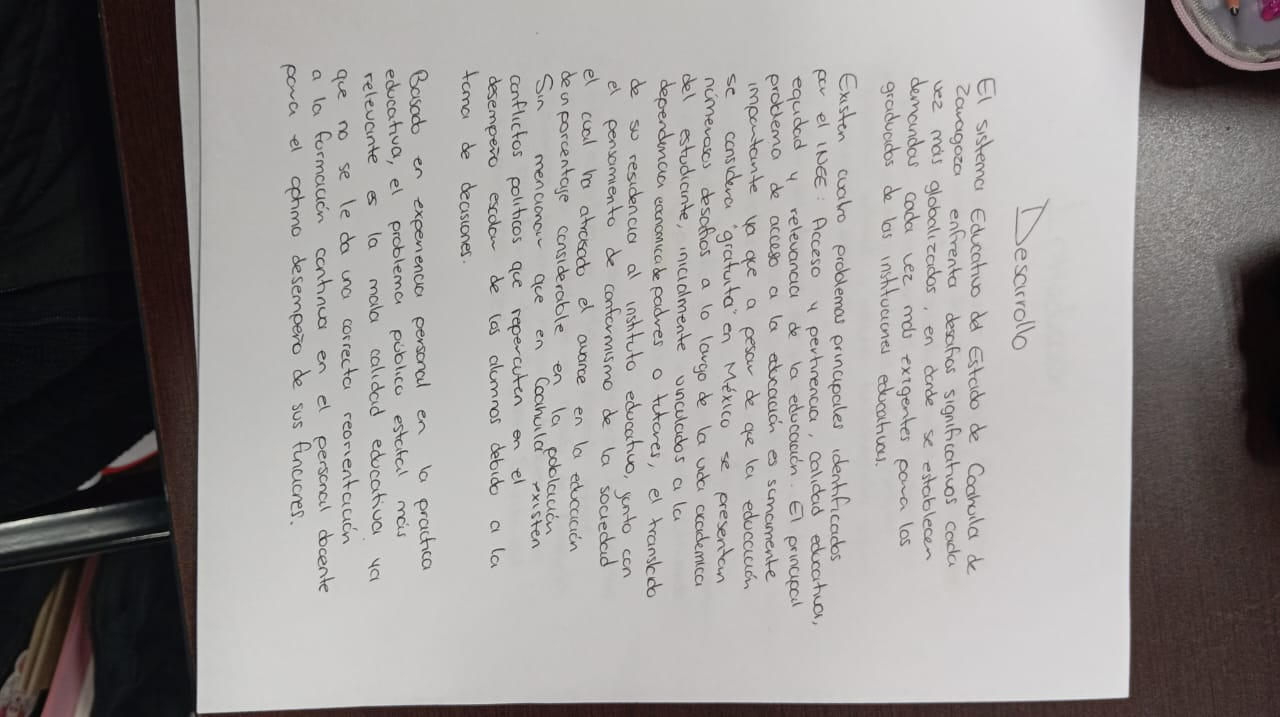 Desarrollo
El sistema Educativo del Estado de Coahuila de
Zaragoza enfrenta desafíos significativos cada
vez más globalizados, en donde se establecen
demandas cada vez más exigentes para los
graduados de las instituciones educativas.
Existen cuatro problemas principales identificados
por el INEE: Acceso y pertinencia, calidad educativa,
equidad y relevancia de la educación. El principal
problema de acceso a la educación es sumamente
importante ya que a pesar de que la educación
se considera "gratuita" en México se presentan
númerosos desafíos a lo largo de la vida academica
del estudiante, inicialmente vinculados a la
dependencia económica de padres o tutores, el translado
de su residencia al instituto educativo, junto con
el pensamiento de conformismo de la sociedad
el cual ha atrasado el avance en la educación
de un porcentaje considerable en la población
Sin mencionar que en Coahuila existen
conflictos políticos que repercuten en el
desempeño escolar de los alumnos debido a la
toma de decisiones.
Basado en experiencia personal en la practica
educativa, el problema público estatal más
relevante es la mala calidad educativa ya
que no se le da una correcta reorientación
a la formación continua en el personal docente
para el optimo desempeño de sus funciones.